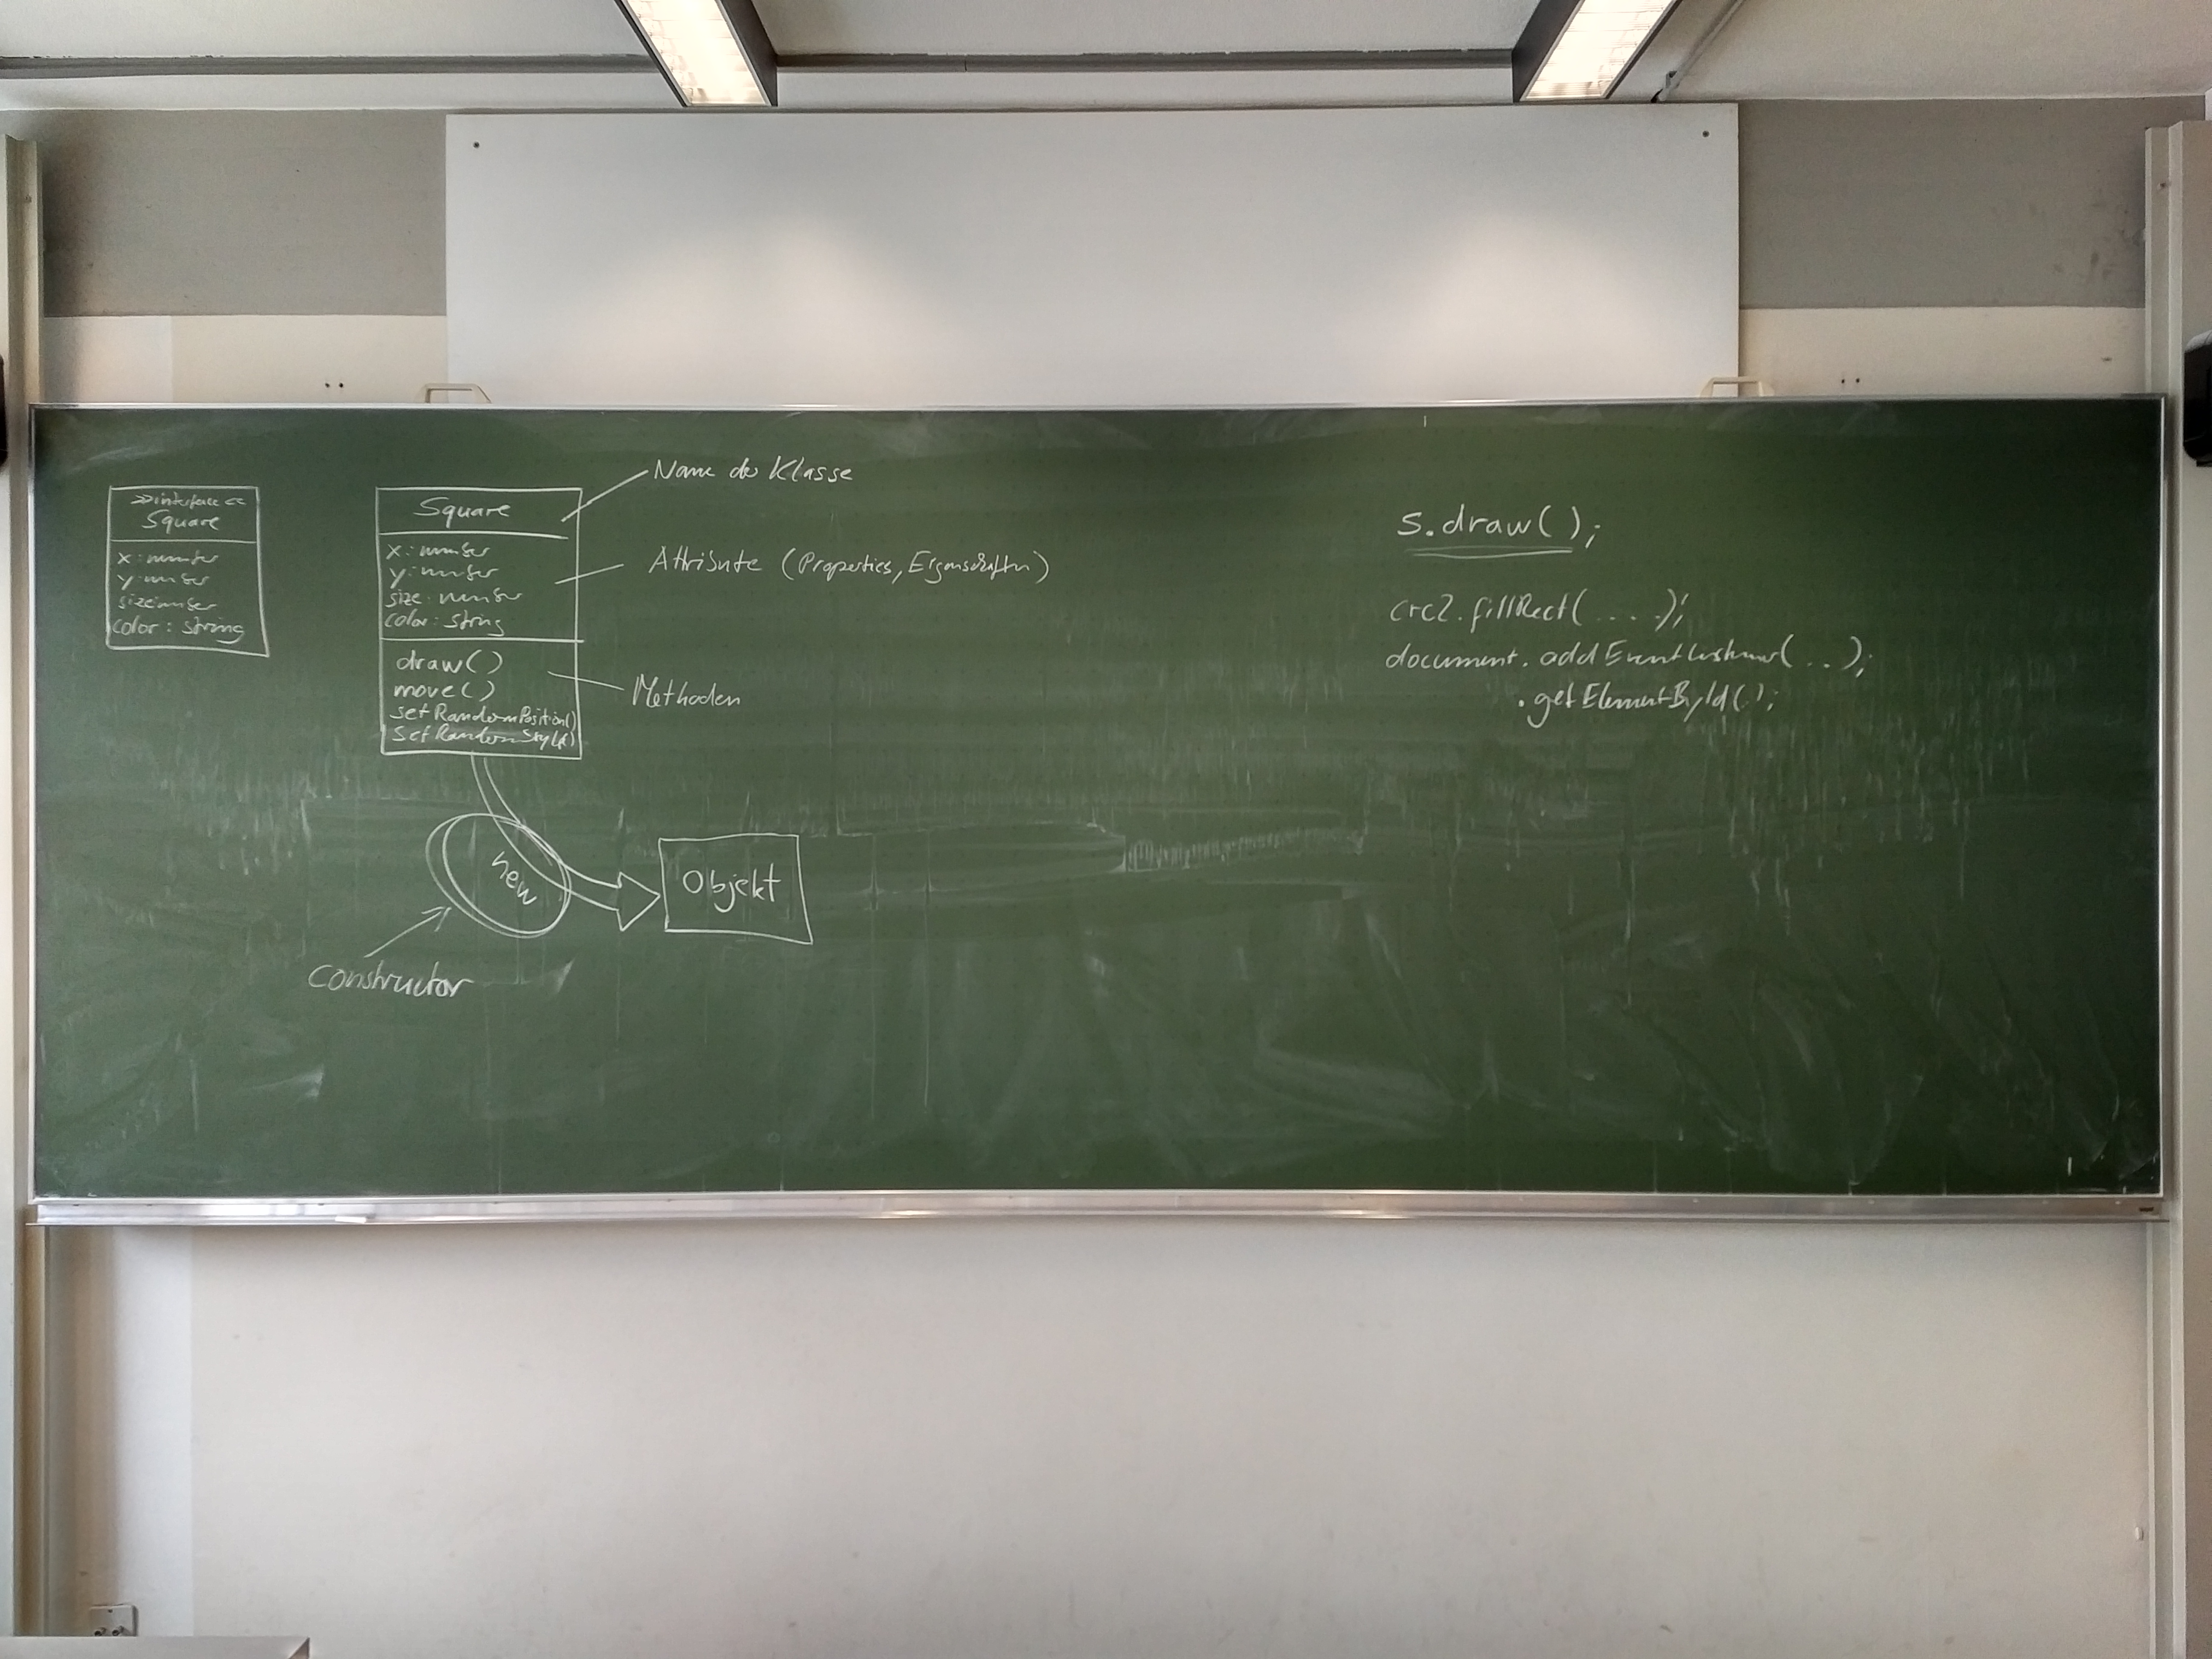 >>interface<<
Square
x: number
y: number
size: number
color: string
Square
x: number
y: number
size: number
color: string
draw()
move()
setRandomPosition()
setRandomStyle()
Name der Klasse
Attribute (Properties, Eigenschaften)
Methoden
new
Objekt
constructor
s.draw();
crc2.fillRect(....);
document.addEventListener(..);
.getElementById();